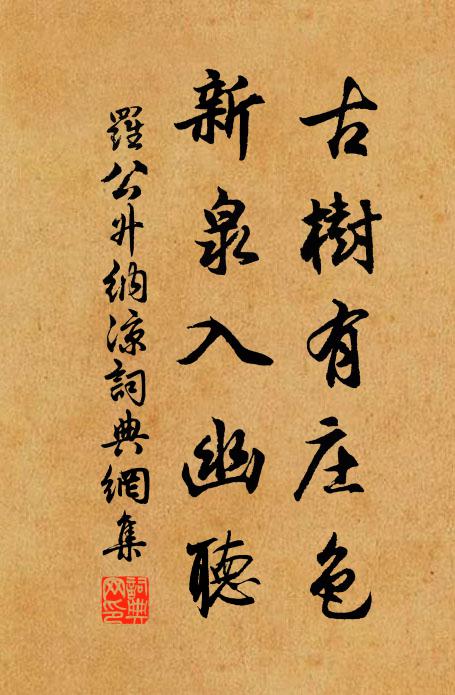 古樹有庄色
新泉入幽聽
羅公升納凉詞典網集
詞典网印